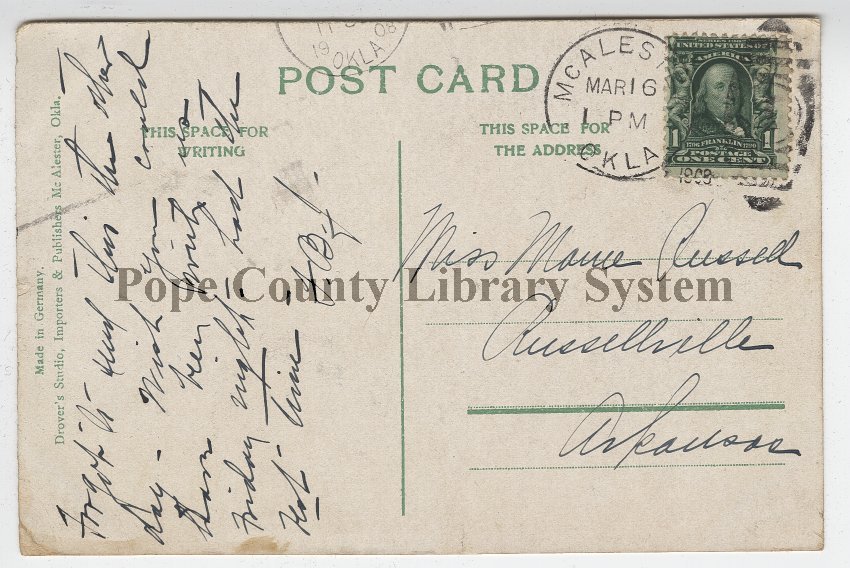 POST CARD
THIS SPACE FOR
WRITING
THIS SPACE FOR
THE ADDRESS
MCALESTER
MAR 16
1 PM
OKLA
1908
11
1908
OKLA
SERIES 1902
UNITED STATES OF
AMERICA
1 1
1706 FRANKLIN 1790
POSTAGE
ONE CENT
Miss Mame Russell
Russellville
Arkansas
Pope County Library System
Made in Germany.
Drover's Studio, Importers & Publishers Mc Alester, Okla.
Forgot to send this the other
day - Wish you could
have been with us
Friday night - had the
Hot time